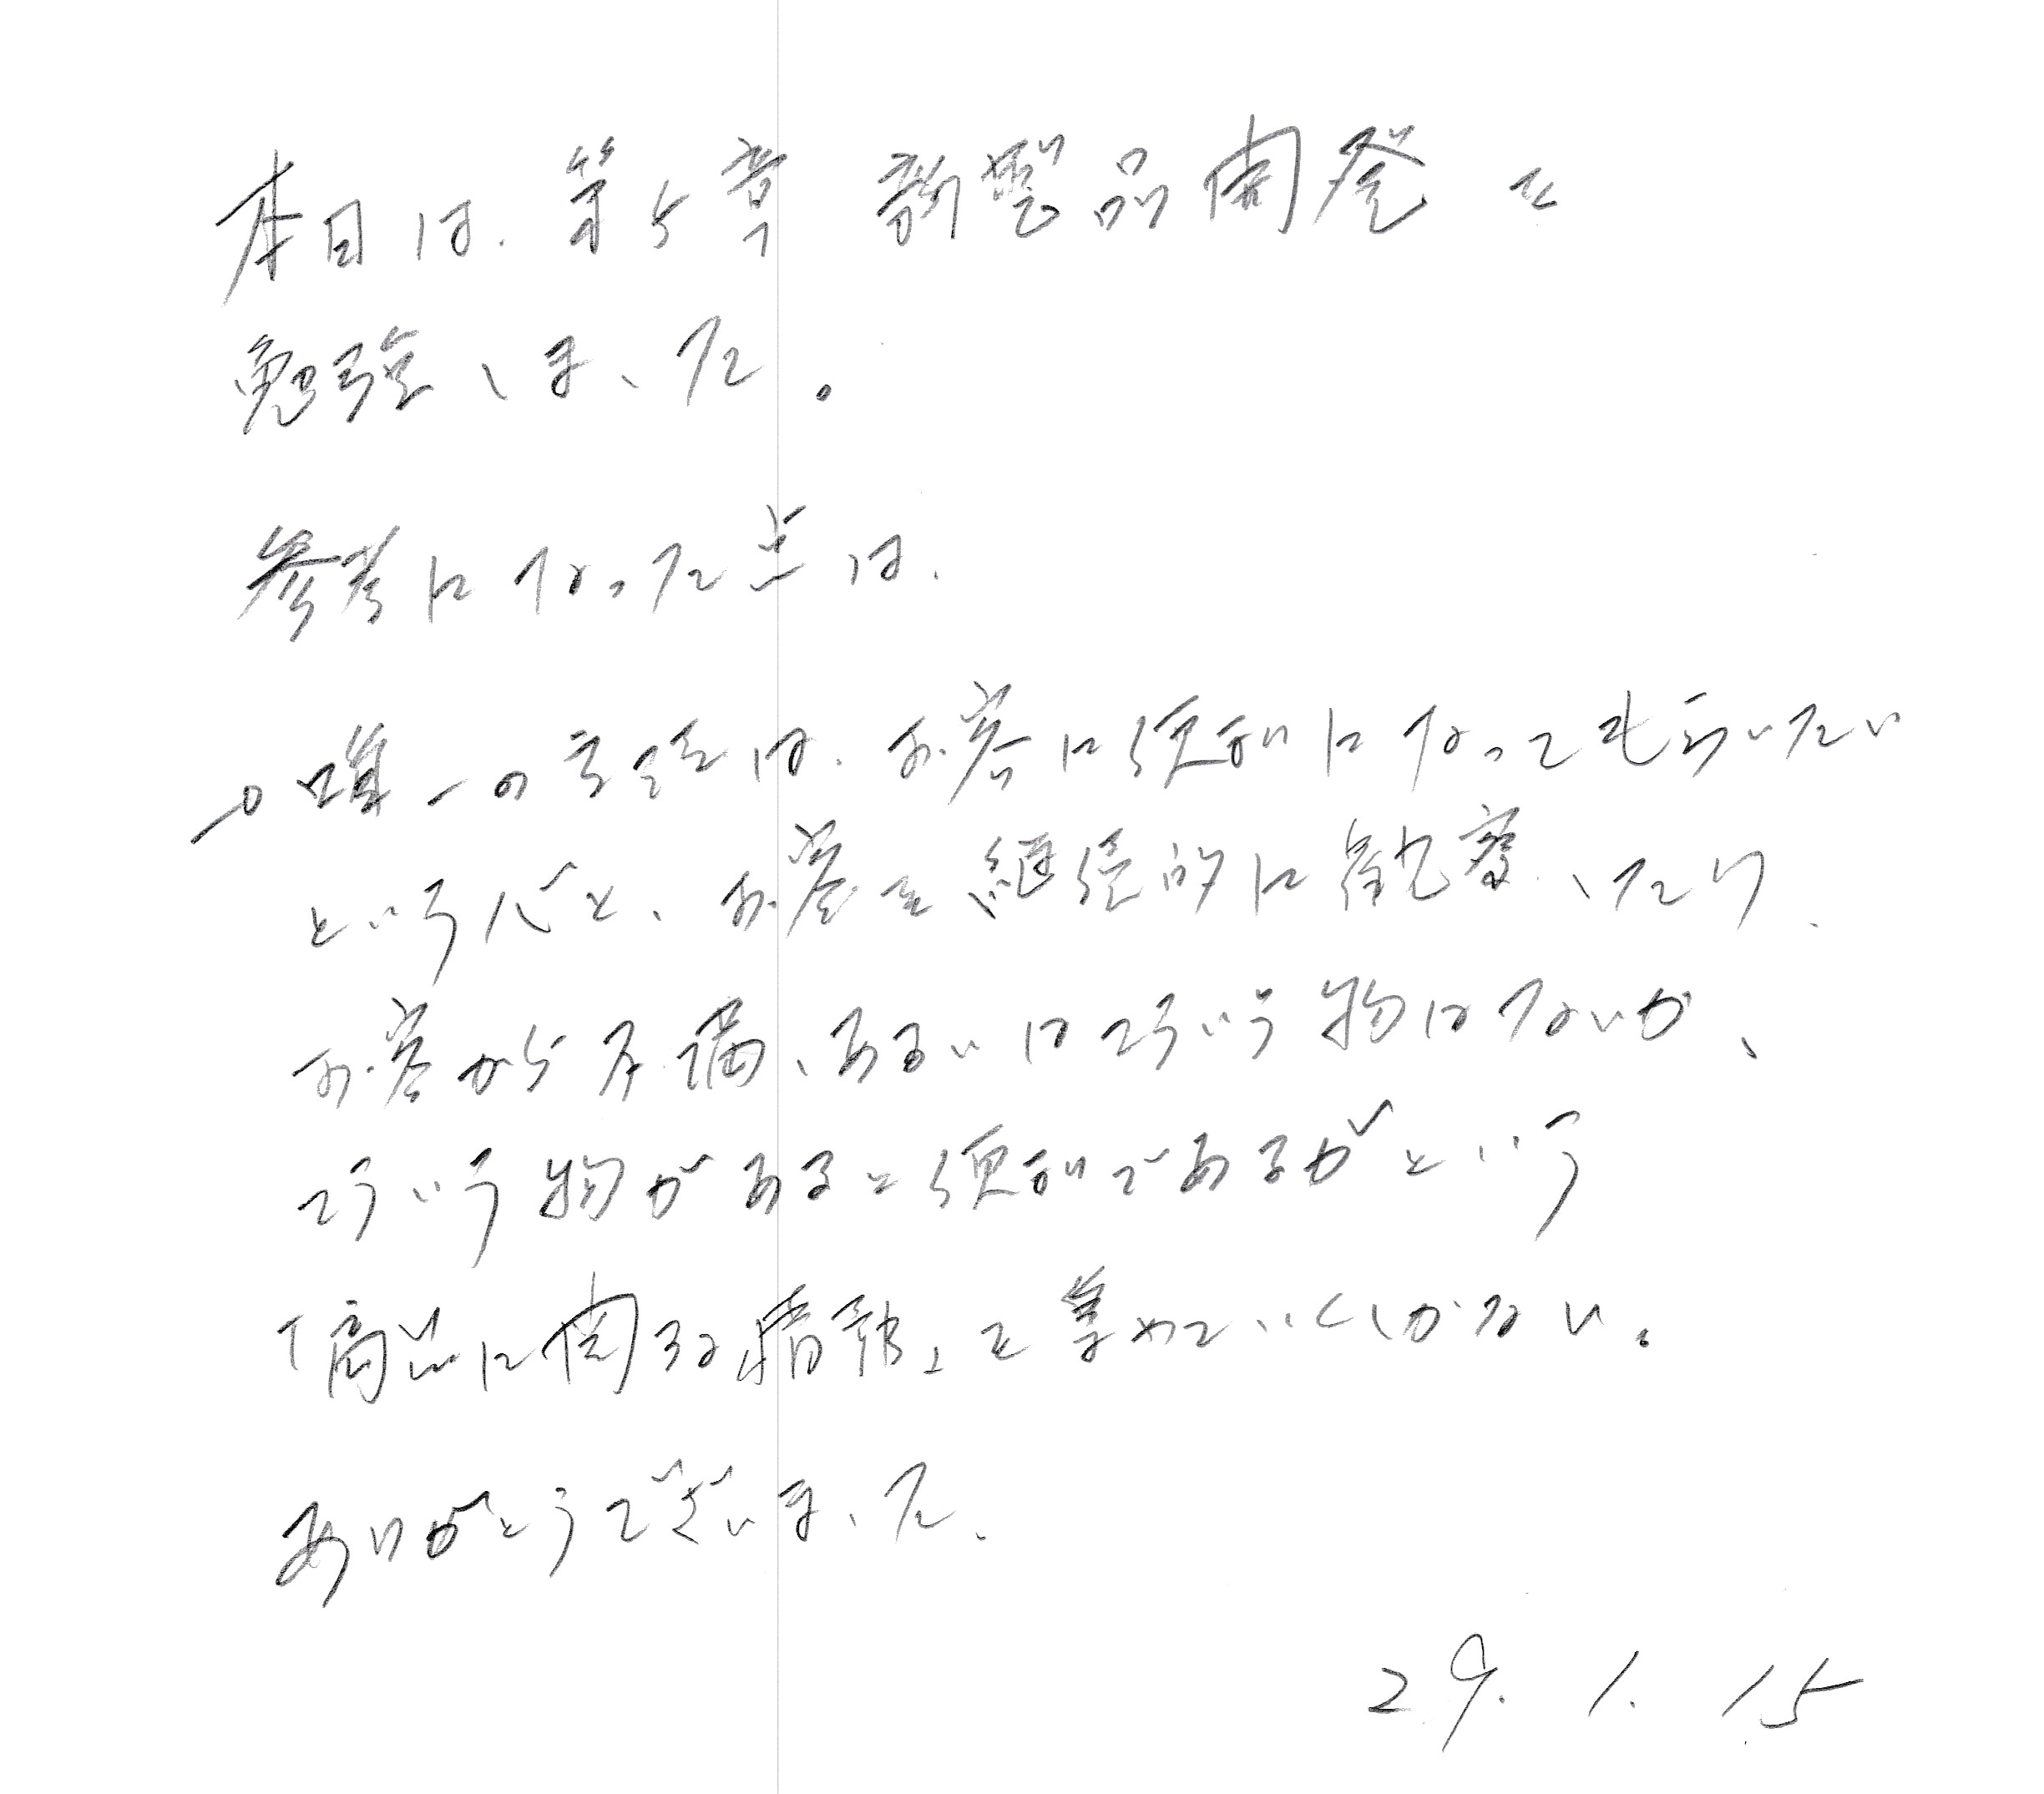 本日は、第5章 新製品開発を
勉強しました。
参考になった点は、
○唯一の方法は、お客に便利になってもらいたい
という心と、お客を継続的に観察したり、
お客から不満、あるいはこういう物はないか、
こういう物があると便利であるがという
「商品に関する情報」を集めていくしかない。
ありがとうございました。
29. 1. 15